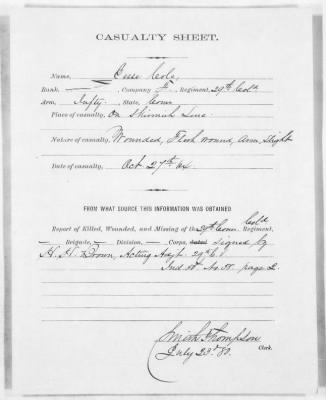 CASUALTY SHEET.
Name, Cole,
Rank — , Company , Regiment, 29th Cold
Arm, Infty, State, Conn
Place of casualty, On Skirmish Line
Nature of casualty, Wounded, Flesh wound, Arm, Slight
Date of casualty, Oct 27th 64
FROM WHAT SOURCE THIS INFORMATION WAS OBTAINED
Report of Killed, Wounded, and Missing of the 29th Conn Cold Regiment,
— Brigade, — Division, — Corps, dated signed by
H. H. Brown, Acting Adjt. 29th C.V.
page 2.
Thompson
Clerk.
July 23d 80.